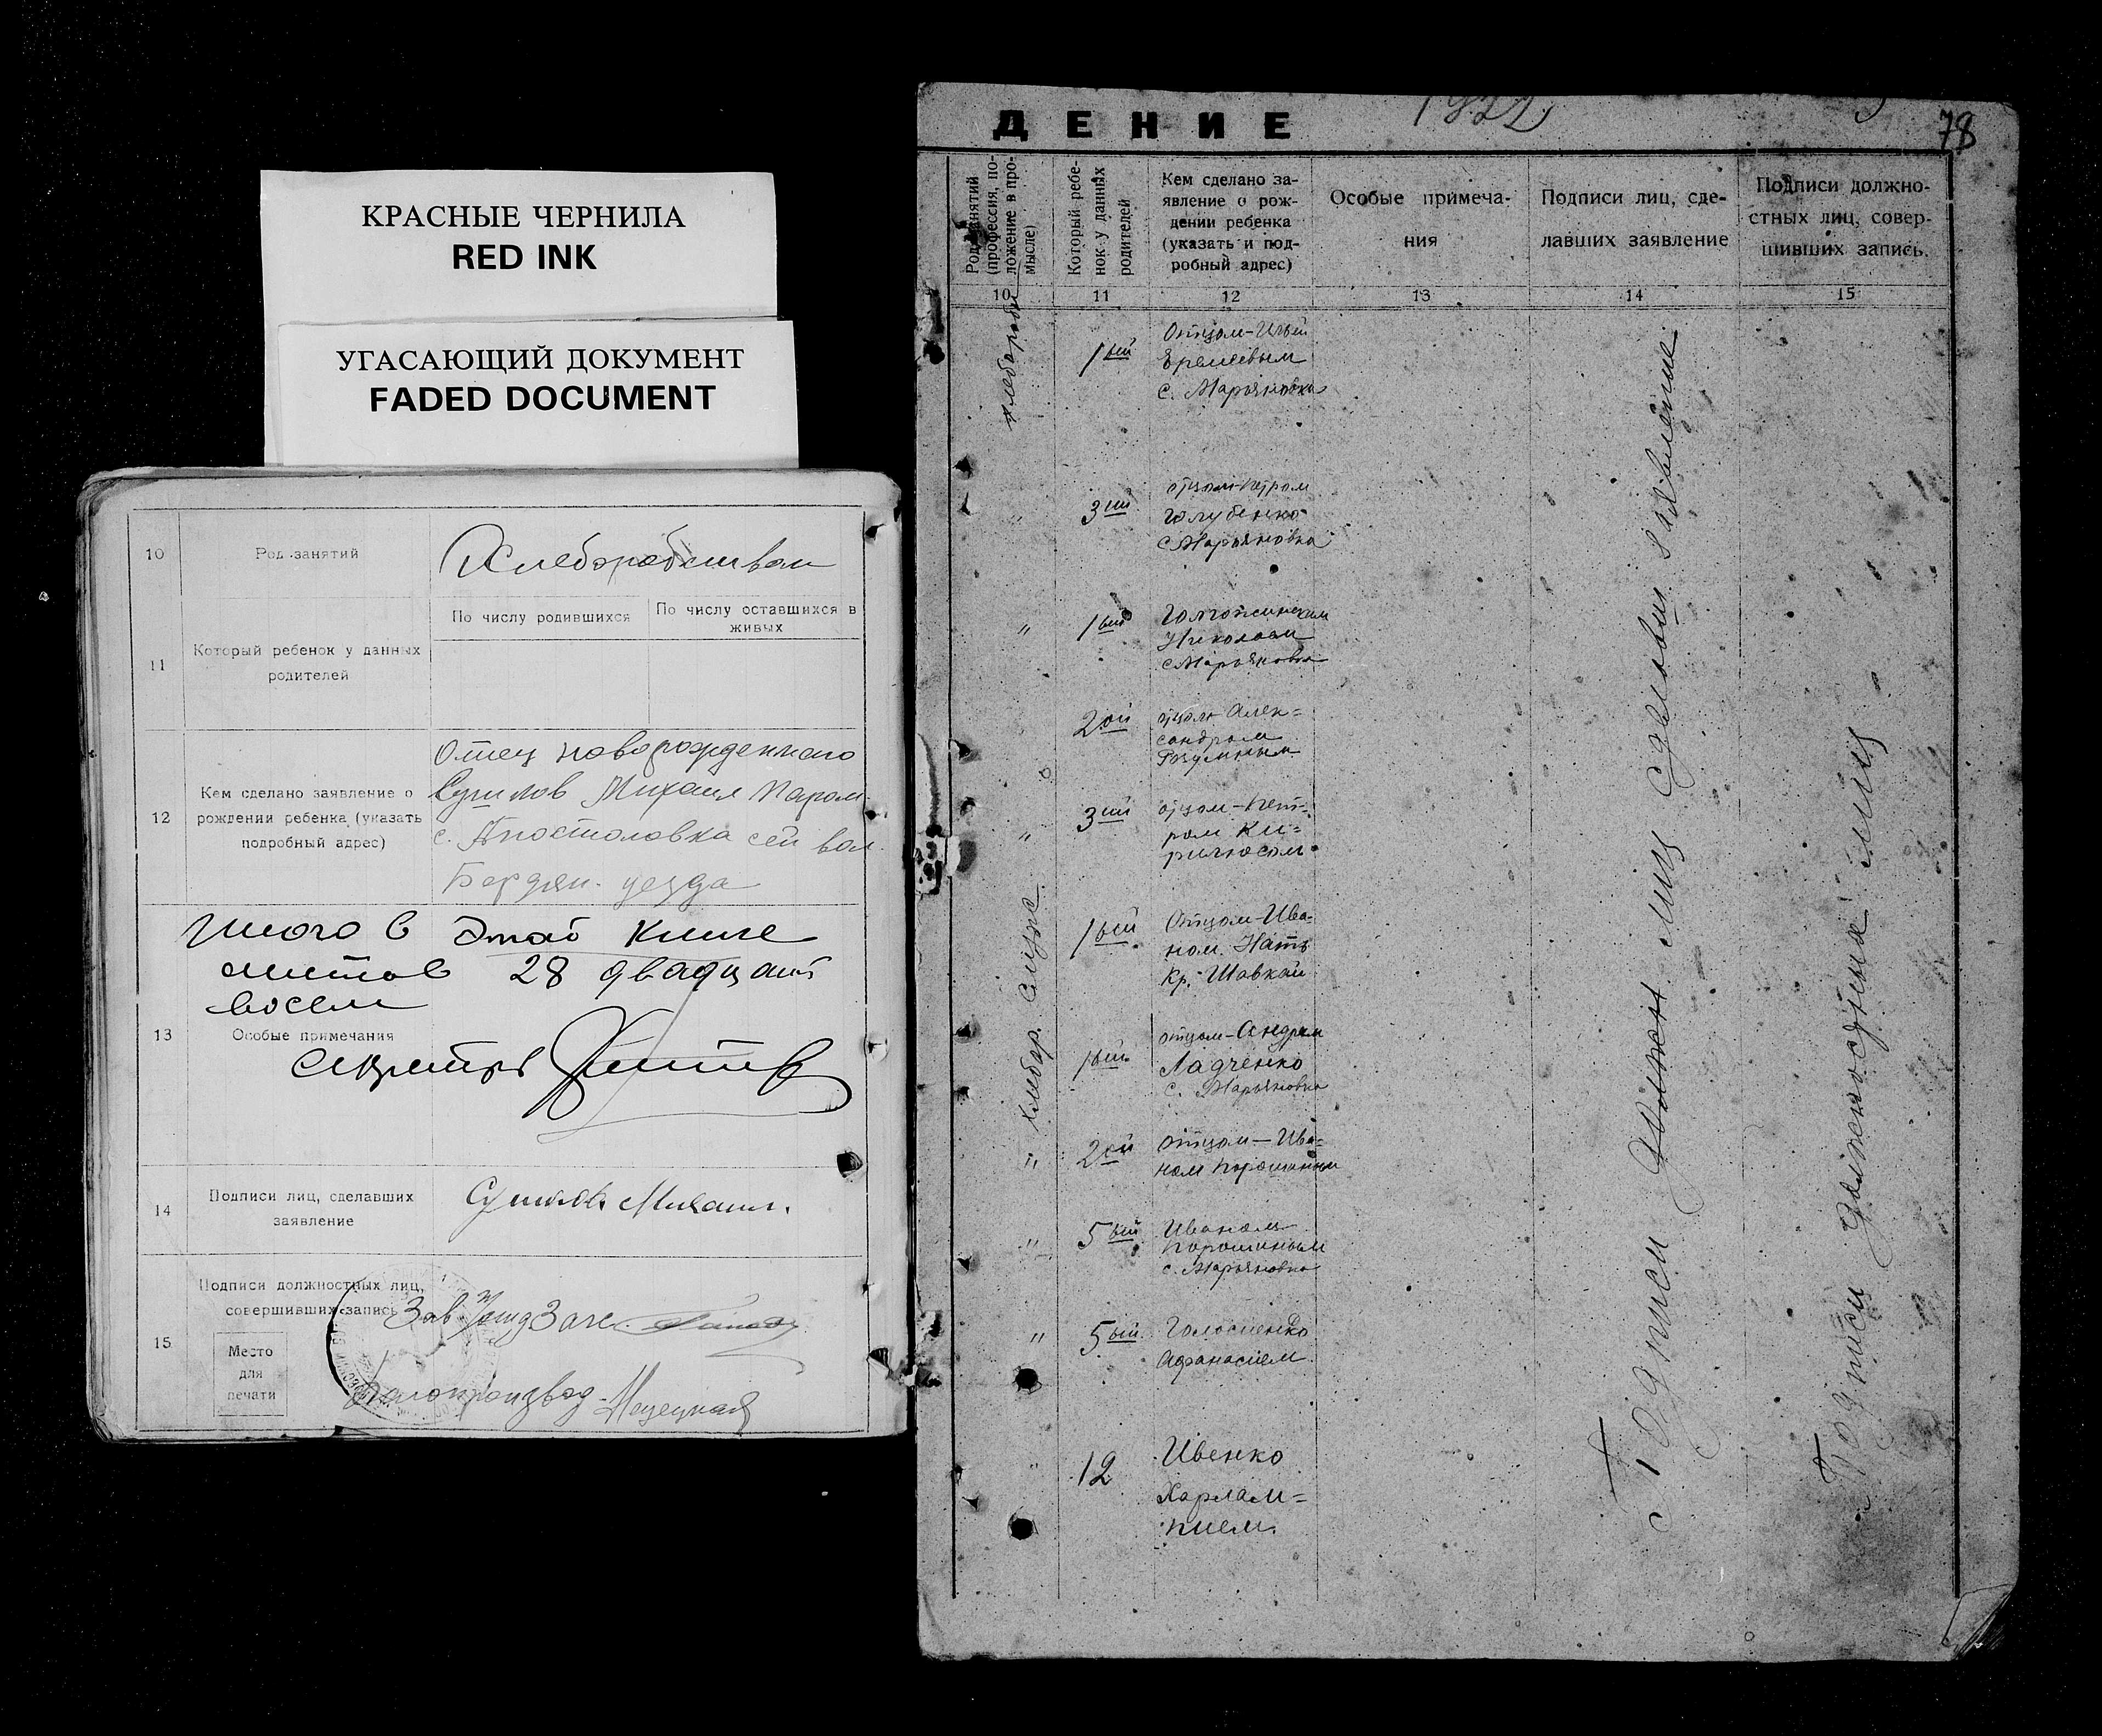 КРАСНЫЕ ЧЕРНИЛА
RED INK
УГАСАЮЩИЙ ДОКУМЕНТ
FADED DOCUMENT
10
Род занятий
Хлеборобством
11
Который ребенок у данных
родителей
По числу родившихся
По числу оставшихся в
живых
12
Кем сделано заявление о
рождении ребенка (указать
подробный адрес)
Отец новорожденного
Михаил
с. Апостоловка сей вол.
Бердян. уезда
Итого в этой книге
листов 28 двадцать
восем
13
Особые примечания
секретарь
14
Подписи лиц, сделавших
заявление
Михаил.
15
Подписи должностных лиц,
совершивших запись
Место
для
печати
Зав
Делопроизвод.
ДЕНИЕ
1922
78
Род занятий
(профессия, по-
ложение в про-
мысле)
Который ребе-
нок у данных
родителей
Кем сделано за-
явление о рож-
дении ребенка
(указать и под-
робный адрес)
Особые примеча-
ния
Подписи лиц, сде-
лавших заявление
Подписи должно-
стных лиц, совер-
шивших запись.
10
11
12
13
14
15
хлебороб
1ый
Отцом-Ильей
Еремеевым
с. Марьяновка
"
3ий
отцом-Петром
Голубенко
с Марьяновка
"
1ый
Николаем
с Марьяновка
2ой
отцом Алек=
сандром
Разумным
"
3ий
отцом-Пет-
ром Ки=
рилюсом
хлебор. служ.
1ый
Отцом-Ива-
ном
Кр. Шавкай
1ый
отцом-Андреем
Ладченко
с. Марьяновка
"
2ой
отцом-Ива=
ном Порошиным
"
5ый
Иваном
Порошиным
с. Марьяновка
"
5ый
Голосненко
Афанасием
"
12
Ивенко
Харлам=
пием.
Подписи должн лиц сделавш заявление
Подписи должностных лиц